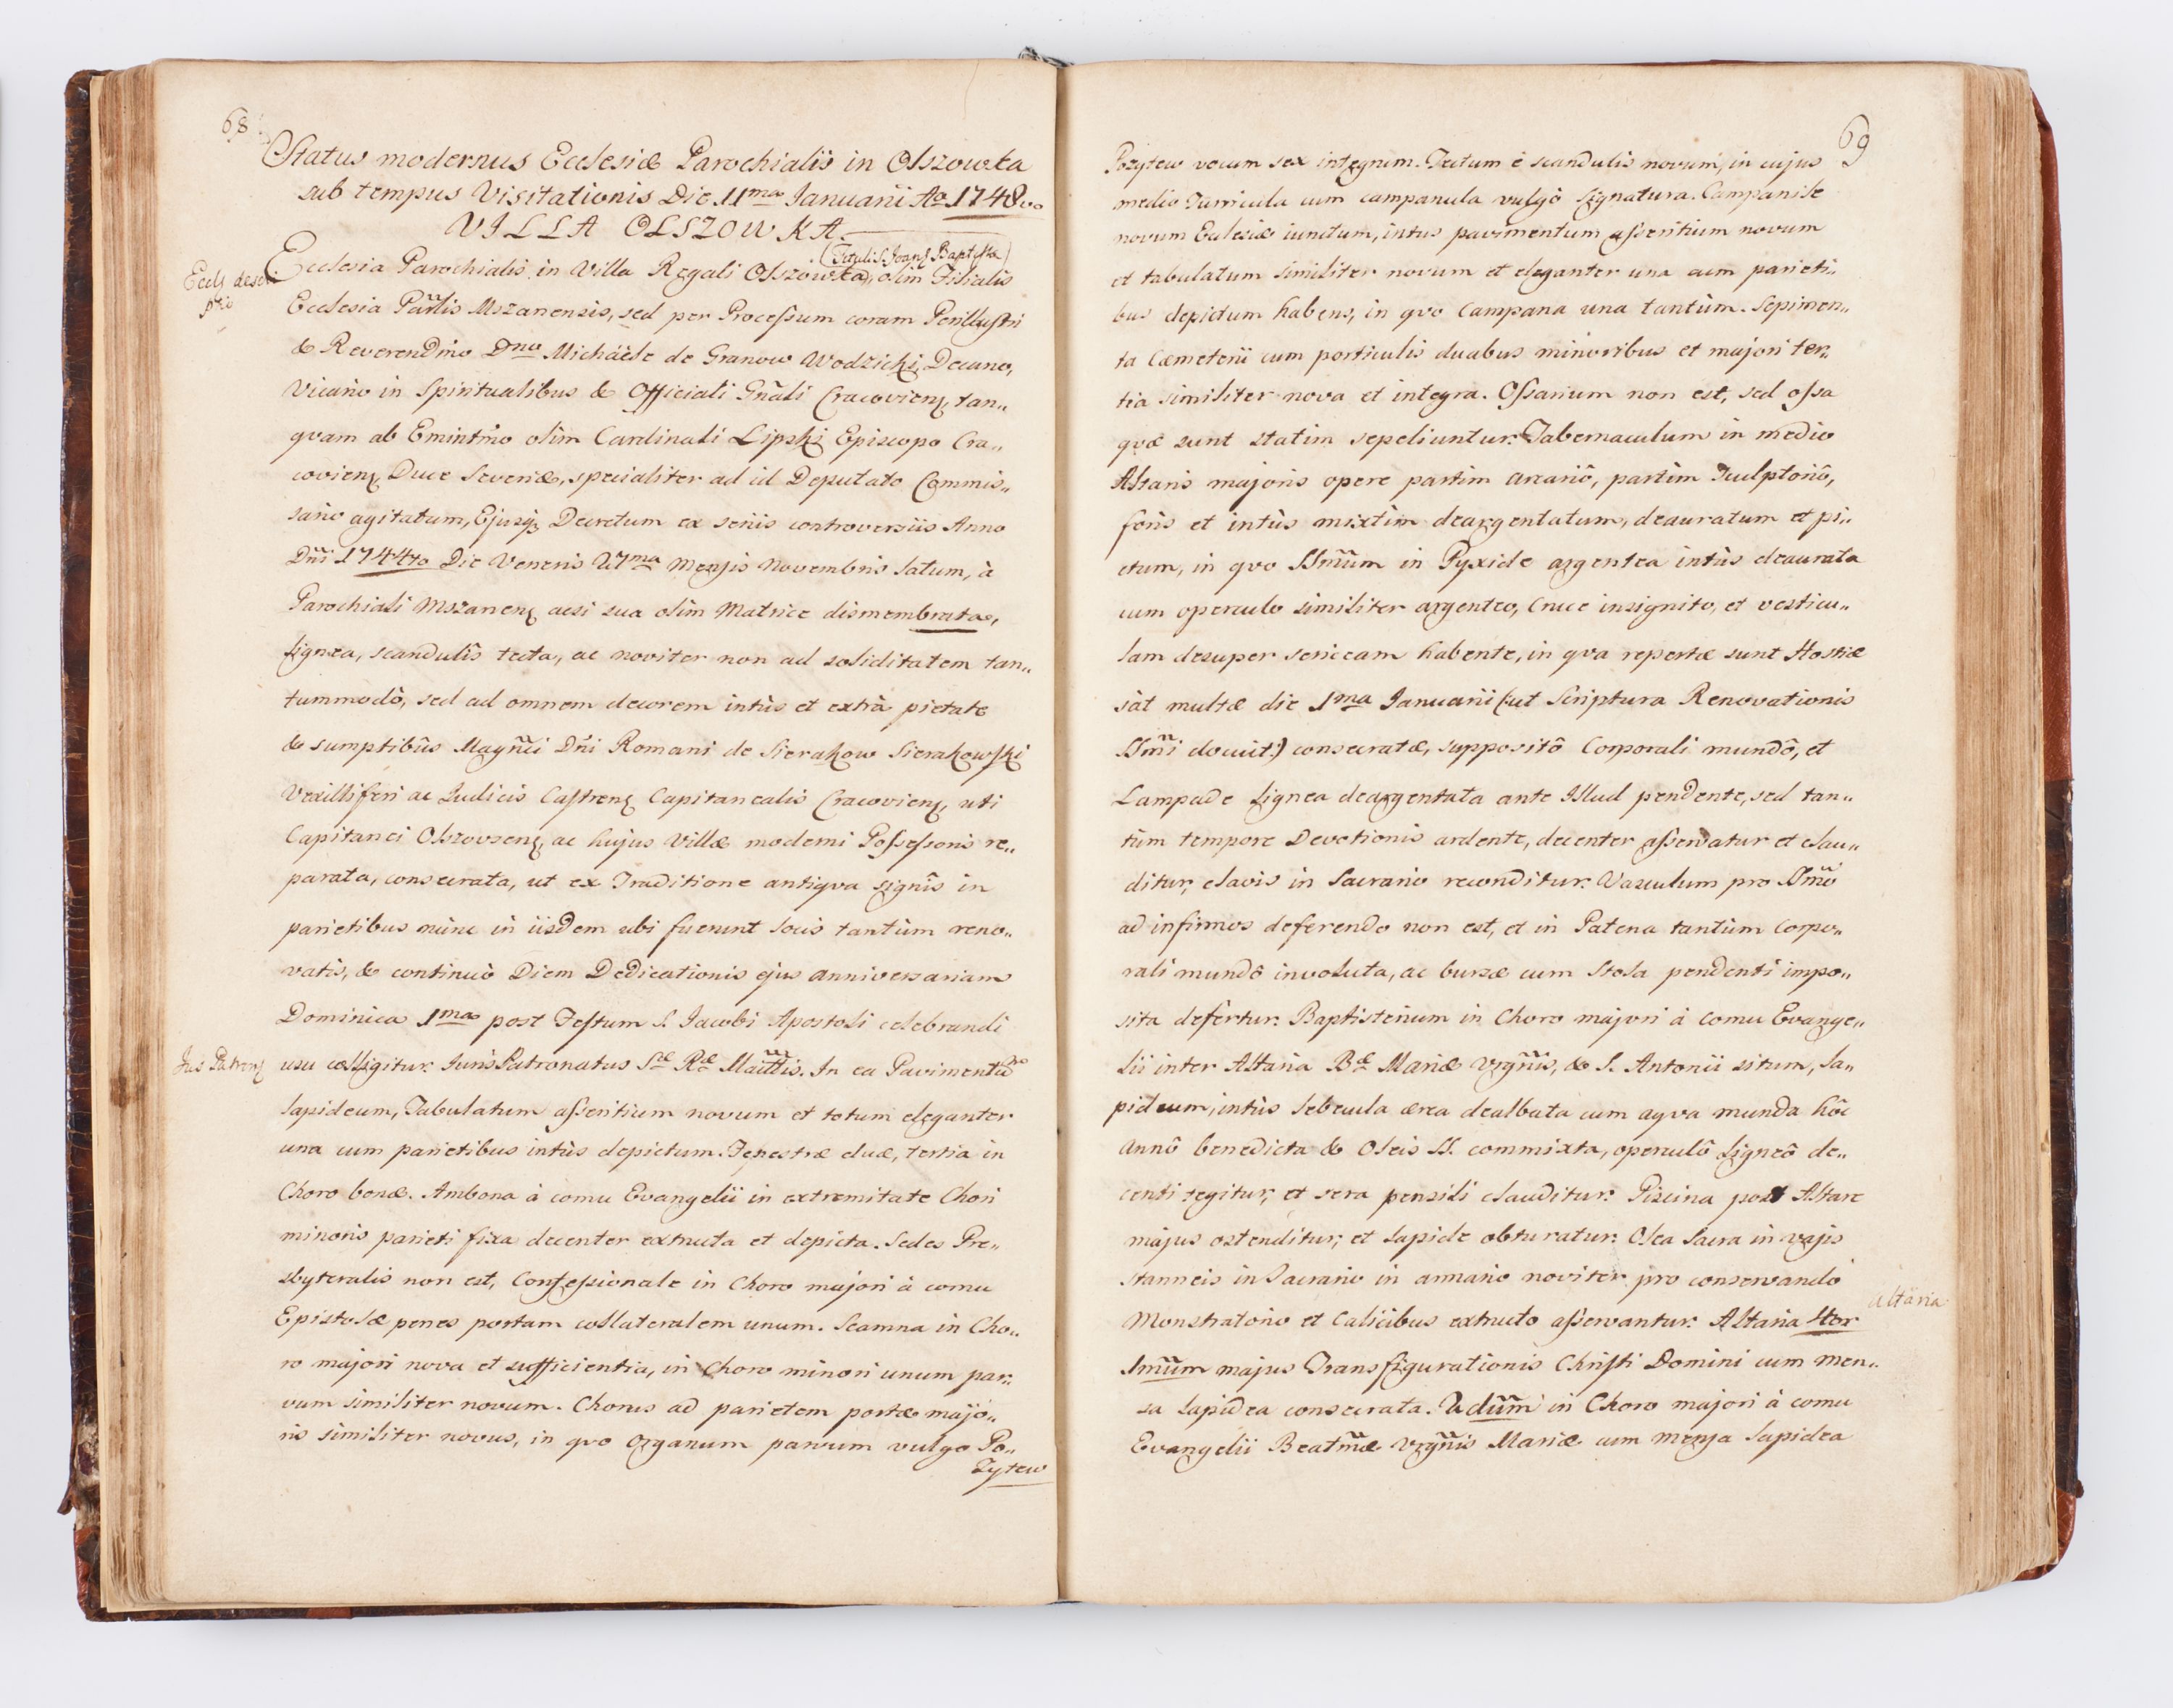 68
Status modernus Ecclesiæ Parochialis in Olszowka
sub tempus Visitationis Die 11ma Januarii Ao 1748vo
VILLA OLSZOWKA.
(Tituli S. Joan͠ Baptistæ)
Eccl͠ descri
ptio
Ecclesia Parochialis, in Villa Regali Olszowka, olim Filialis
Ecclesia Par͠lis Mszanensis, sed per Processum coram Perillustri
& Reverendm̃o Dno Michäele de Granow Wodzicki, Decano,
Vicario in Spiritualibus & Officiali Gñali Cracovien͠, tan,,
qvam ab Emintm̃o olim Cardinali Lipski Episcopo Cra,,
covien͠ Duce Severiæ, specialiter ad id Deputato Commis,,
sario agitatum, Ejusq; Decretum ex seriis controversiis Anno
Dñi 1744to Die Veneris V7ma Mensis Novembris latum, à
Parochiali Mszanen͠ acsi sua olim Matrice dismembrata,
lignea, scandulîs tecta, ac noviter non ad soliditatem tan,,
tummodò, sed ad omnem decorem intùs et extrà pietate
& sumptibûs Magñci Dñi Romani de Sierakow Sierakowski
Vexilliferi ac Judicis Castren͠ Capitanealis Cracovien͠, uti
Capitanei Olszovsen͠, ac hujus Villæ moderni Possessoris re,,
parata, consecrata, ut ex Traditione antiqva signîs in
parietibus nunc in iisdem ubi fuerunt locis tantùm reno,,
vatis, & continuò Diem Dedicationis ejus anniversariam
Dominica 1ma post Festum S. Jacobi Apostoli celebrandi
Jus Patron͠
usu colligitur. Juris Patronatus Sæ Ræ Mattis. In ea Pavimentũ
lapideum, Tabulatum asseritium novum et totum eleganter
una cum parietibus intùs depictum. Fenestræ duæ, tertia in
Choro bonæ. Ambona à cornu Evangelii in extremitate Chori
minoris parieti fixa decenter extructa et depicta. Sedes Pre,,
sbyteralis non est, Confessionale in Choro majori à cornu
Epistolæ penes portam collateralem unum. Scamna in Cho,,
ro majori nova et sufficientia, in Choro minori unum par,,
vum similiter novum. Chorus ad parietem portæ majo,,
ris similiter novus, in qvo organum parvum vulgo Po,,
zytew
69
Pozytew vocum sex integrum. Tectum è scandulis novum, in cujus
medio Turricula cum campanula vulgò Sygnatura. Campanile
novum Ecclesiæ iunctum, intus pavimentum asseritium novum
et tabulatum similiter novum et eleganter una cum parieti,,
bus depictum habens, in qvo Campana una tantùm. Sepimen,,
ta Cæmeterii cum porticulis duabus minoribus et majori ter,,
tia similiter nova et integra. Ossarium non est, sed ossa
qvæ sunt statim sepeliuntur. Tabernaculum in medio
Altaris majoris opere partim arcariô, partim Sculptoriô,
foris et intùs mixtim deargentatum, deauratum et pi,,
ctum, in qvo SSm̃um in Pyxide argentea intùs deaurata
cum operculo similiter argenteo, Cruce insignito, et vesticu,,
lam desuper sericeam habente, in qva repertæ sunt Hostiæ
sàt multæ die 1ma Januarii (ut Scriptura Renovationis
SSm̃i docuit:) consecratæ, suppositô Corporali mundô, et
Lampade lignea deargentata ante Illud pendente, sed tan,,
tùm tempore Devotionis ardente, decenter asservatur et clau,,
ditur, clavis in Sacrario reconditur. Vasculum pro SSm̃o
ad infirmos deferendo non est, et in Patena tantùm Corpo,,
rali mundô involuta, ac bursæ cum Stola pendenti impo,,
sita defertur. Baptisterium in Choro majori à cornu Evange,,
lii inter Altaria Bæ Mariæ Vrgñis, & S. Antonii situm, la,,
pideum, intùs lebecula ærea dealbata cum aqva munda hôc
annô benedicta & Oleis SS. commixta, operculô ligneô de,,
centi tegitur, et sera pensili clauditur. Piscina post Altare
majus ostenditur, et lapide obturatur. Olea Sacra in vasis
stanneis in Sacrario in armario noviter pro conservando
Monstratorio et Calicibus extructo asservantur. Altaria 4tor
Altaria
1mũm majus Transfigurationis Christi Domini cum men,,
sa lapidea consecrata. 2dũm in Choro majori à cornu
Evangelii Beatm̃æ Vrgñis Mariæ cum mensa lapidea